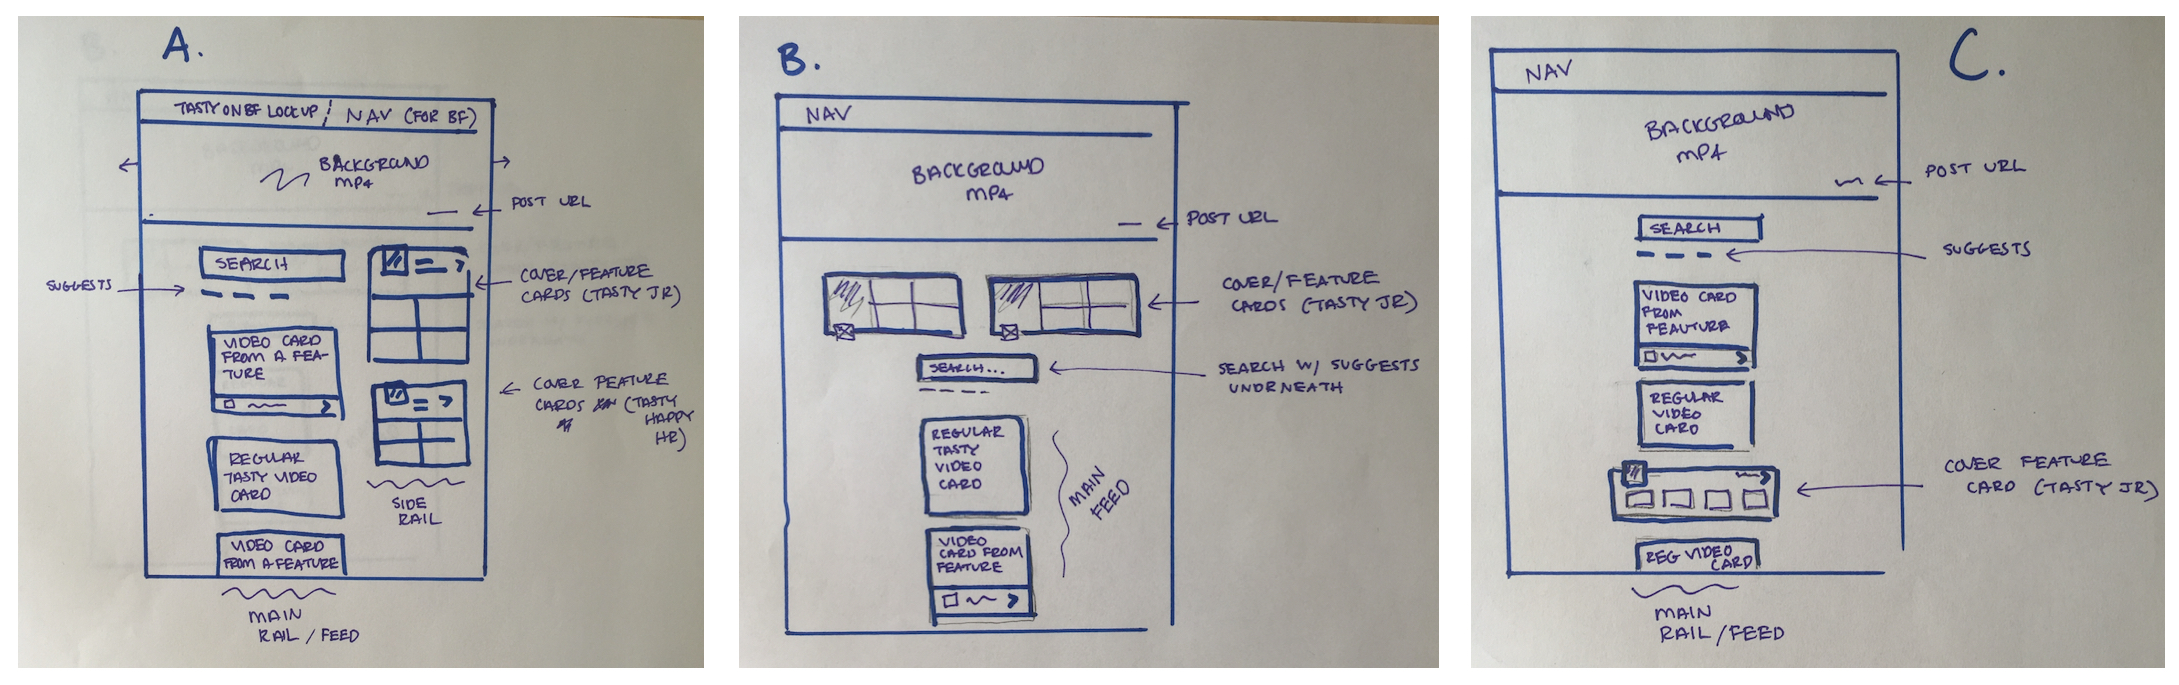 A.
TASTY ON BF LOCKUP / NAV (FOR BF)
BACKGROUND
MP4
POST URL
SEARCH
SUGGESTS
COVER/FEATURE
CARDS (TASTY JR)
VIDEO CARD
FROM A FEA-
TURE
COVER FEATURE
CARDS (TASTY
HAPPY
HR)
REGULAR
TASTY VIDEO
CARD
SIDE
RAIL
VIDEO CARD
FROM A FEATURE
MAIN
RAIL/FEED
B.
NAV
BACKGROUND
MP4
POST URL
COVER/FEATURE
CARDS (TASTY JR)
SEARCH...
SEARCH W/ SUGGESTS
UNDRNEATH
REGULAR
TASTY
VIDEO
CARD
MAIN
FEED
VIDEO
CARD FROM
FEATURE
C.
NAV
BACKGROUND
MP4
POST URL
SEARCH
SUGGESTS
VIDEO CARD
FROM
FEAUTURE
REGULAR
VIDEO
CARD
COVER FEATURE
CARD (TASTY JR)
REG VIDEO
CARD
MAIN
RAIL/FEED